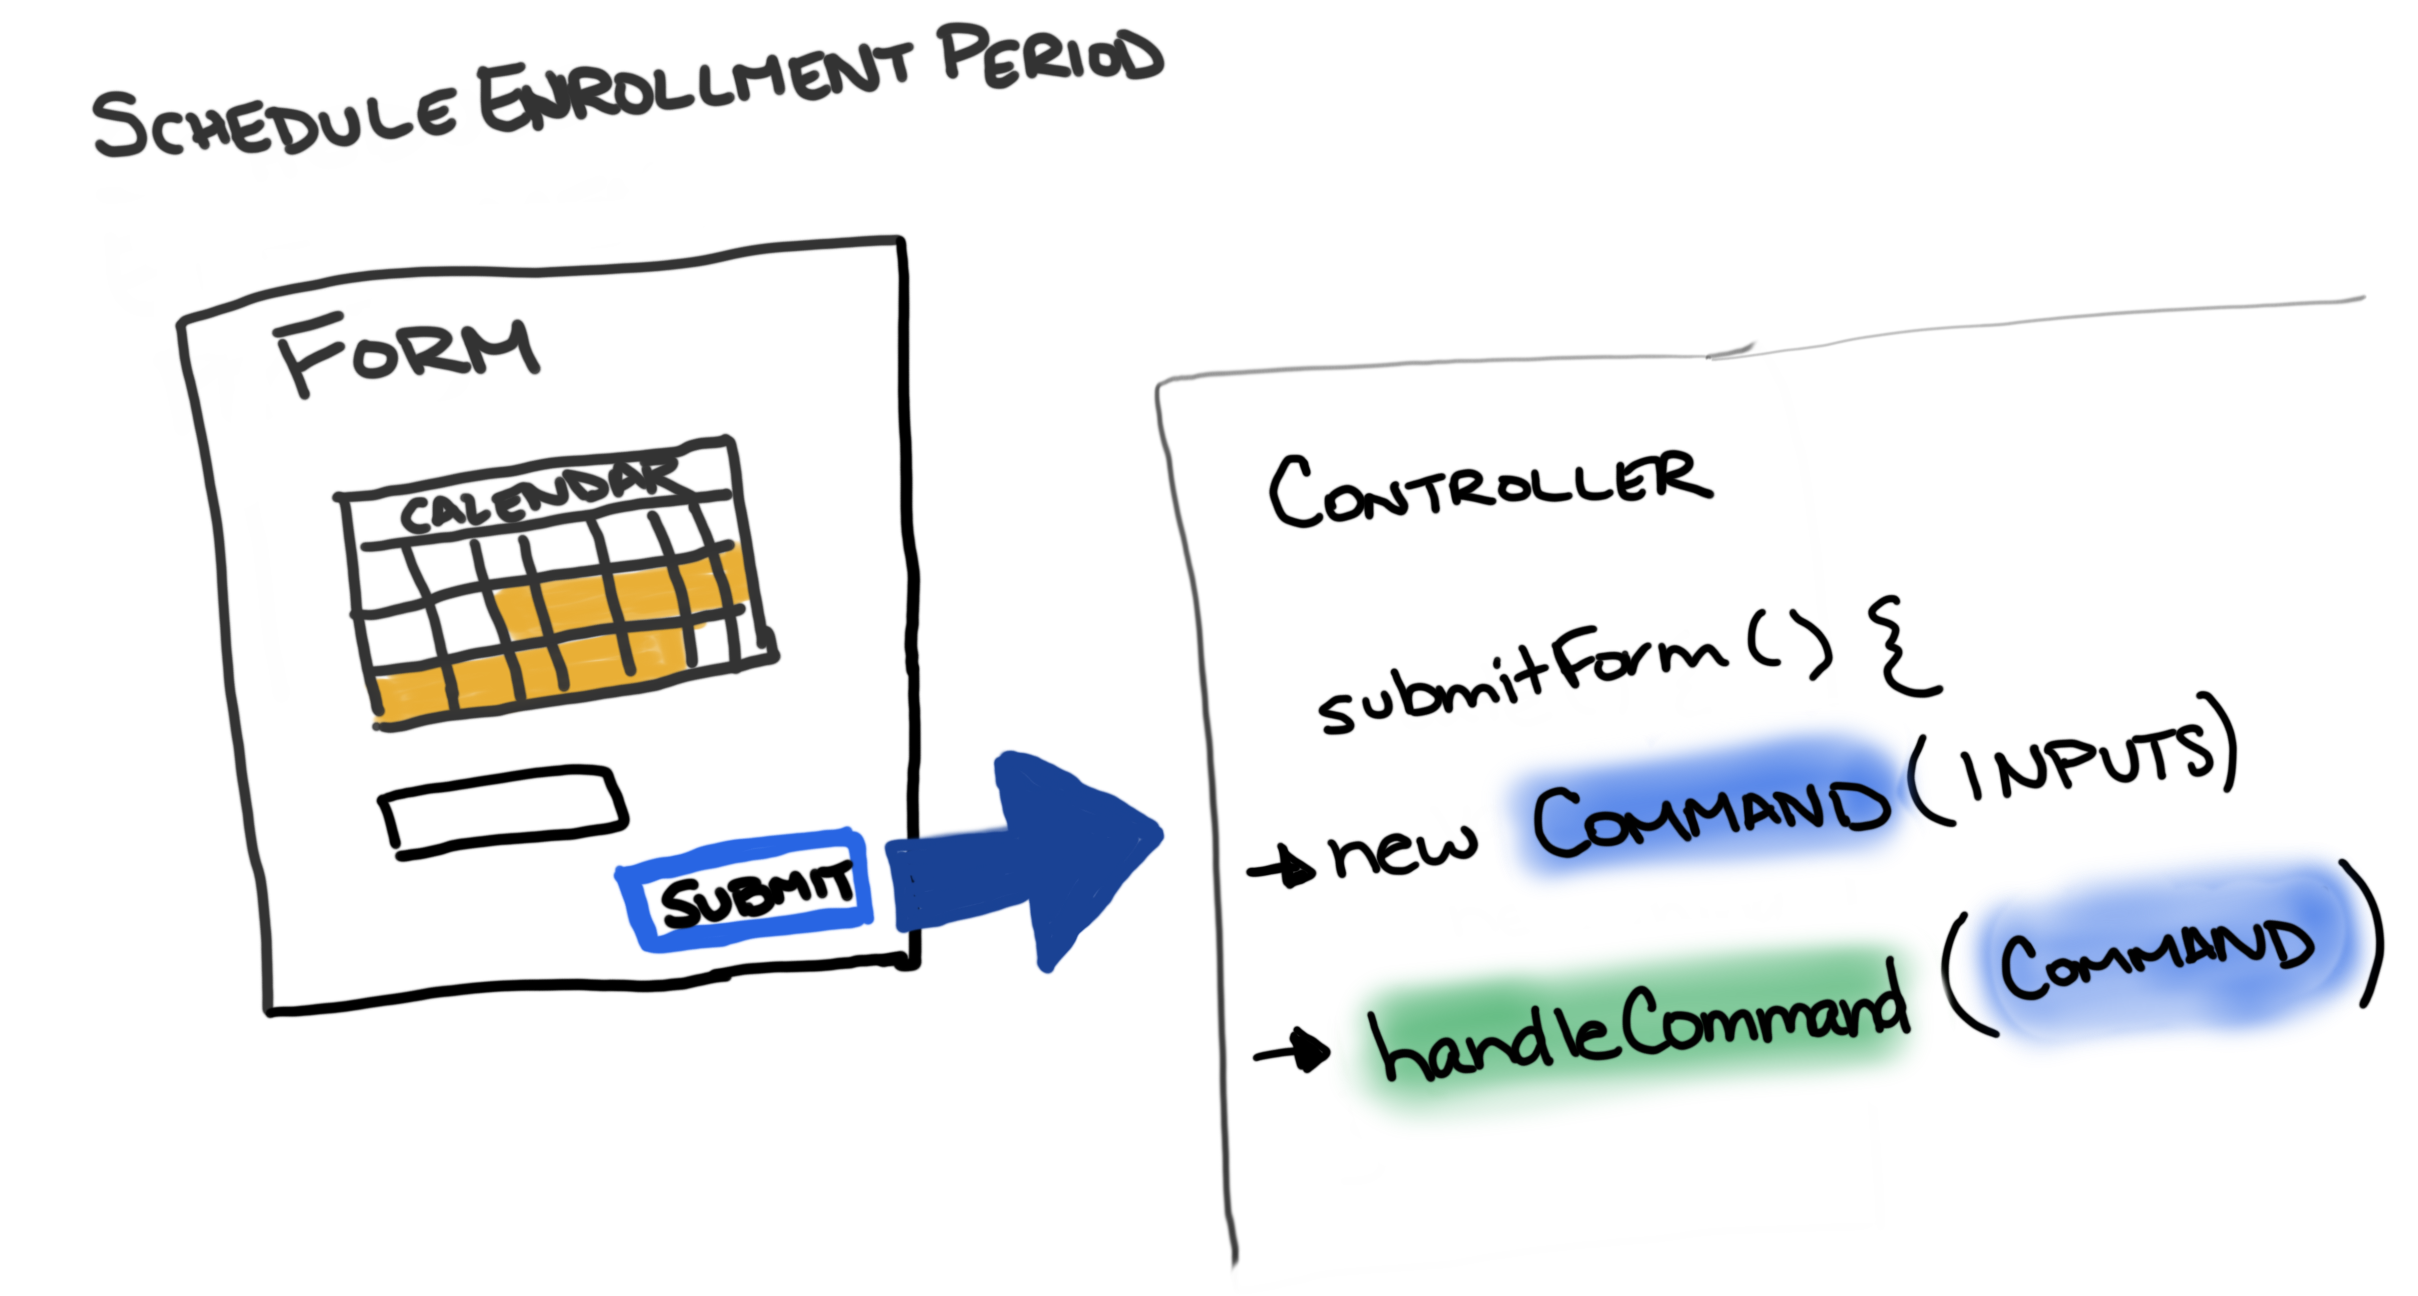 SCHEDULE ENROLLMENT PERIOD
FORM
CALENDAR
SUBMIT
CONTROLLER
submitForm () {
→ new COMMAND (INPUTS)
→ handleCommand (COMMAND)